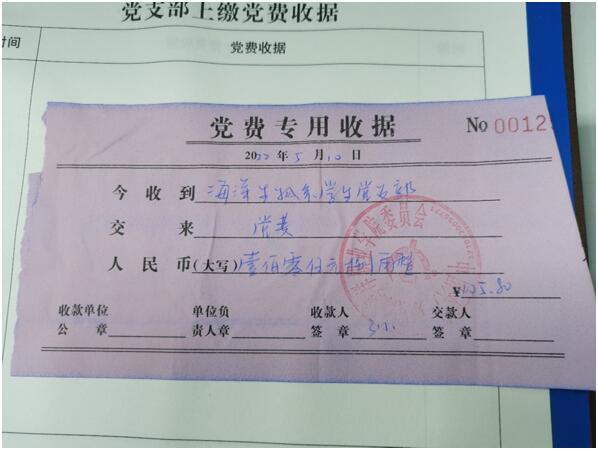 党支部上缴党费收据
时间 党费收据
党费专用收据 No 0012
2022 年 5 月 10 日
今收到 海洋生物系学生党支部
交来 党费
人民币(大写) 壹佰零伍元捌角整
¥105.80
收款单位 单位负 收款人 交款人
公章 责人章 签章 签章
学院委员会